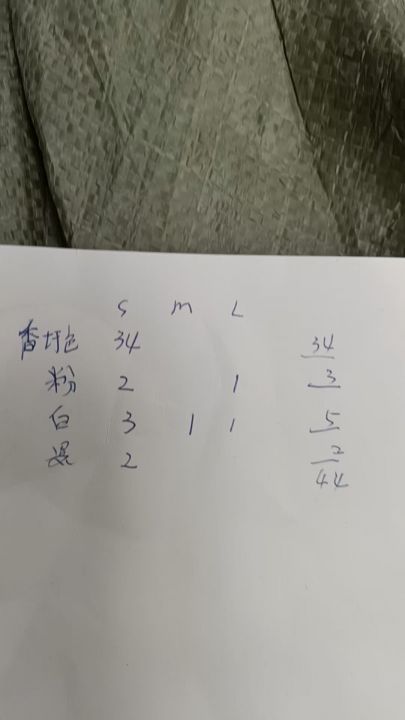 S M L
香槟色 34 34
粉 2 1 3
白 3 1 1 5
黑 2 2
44